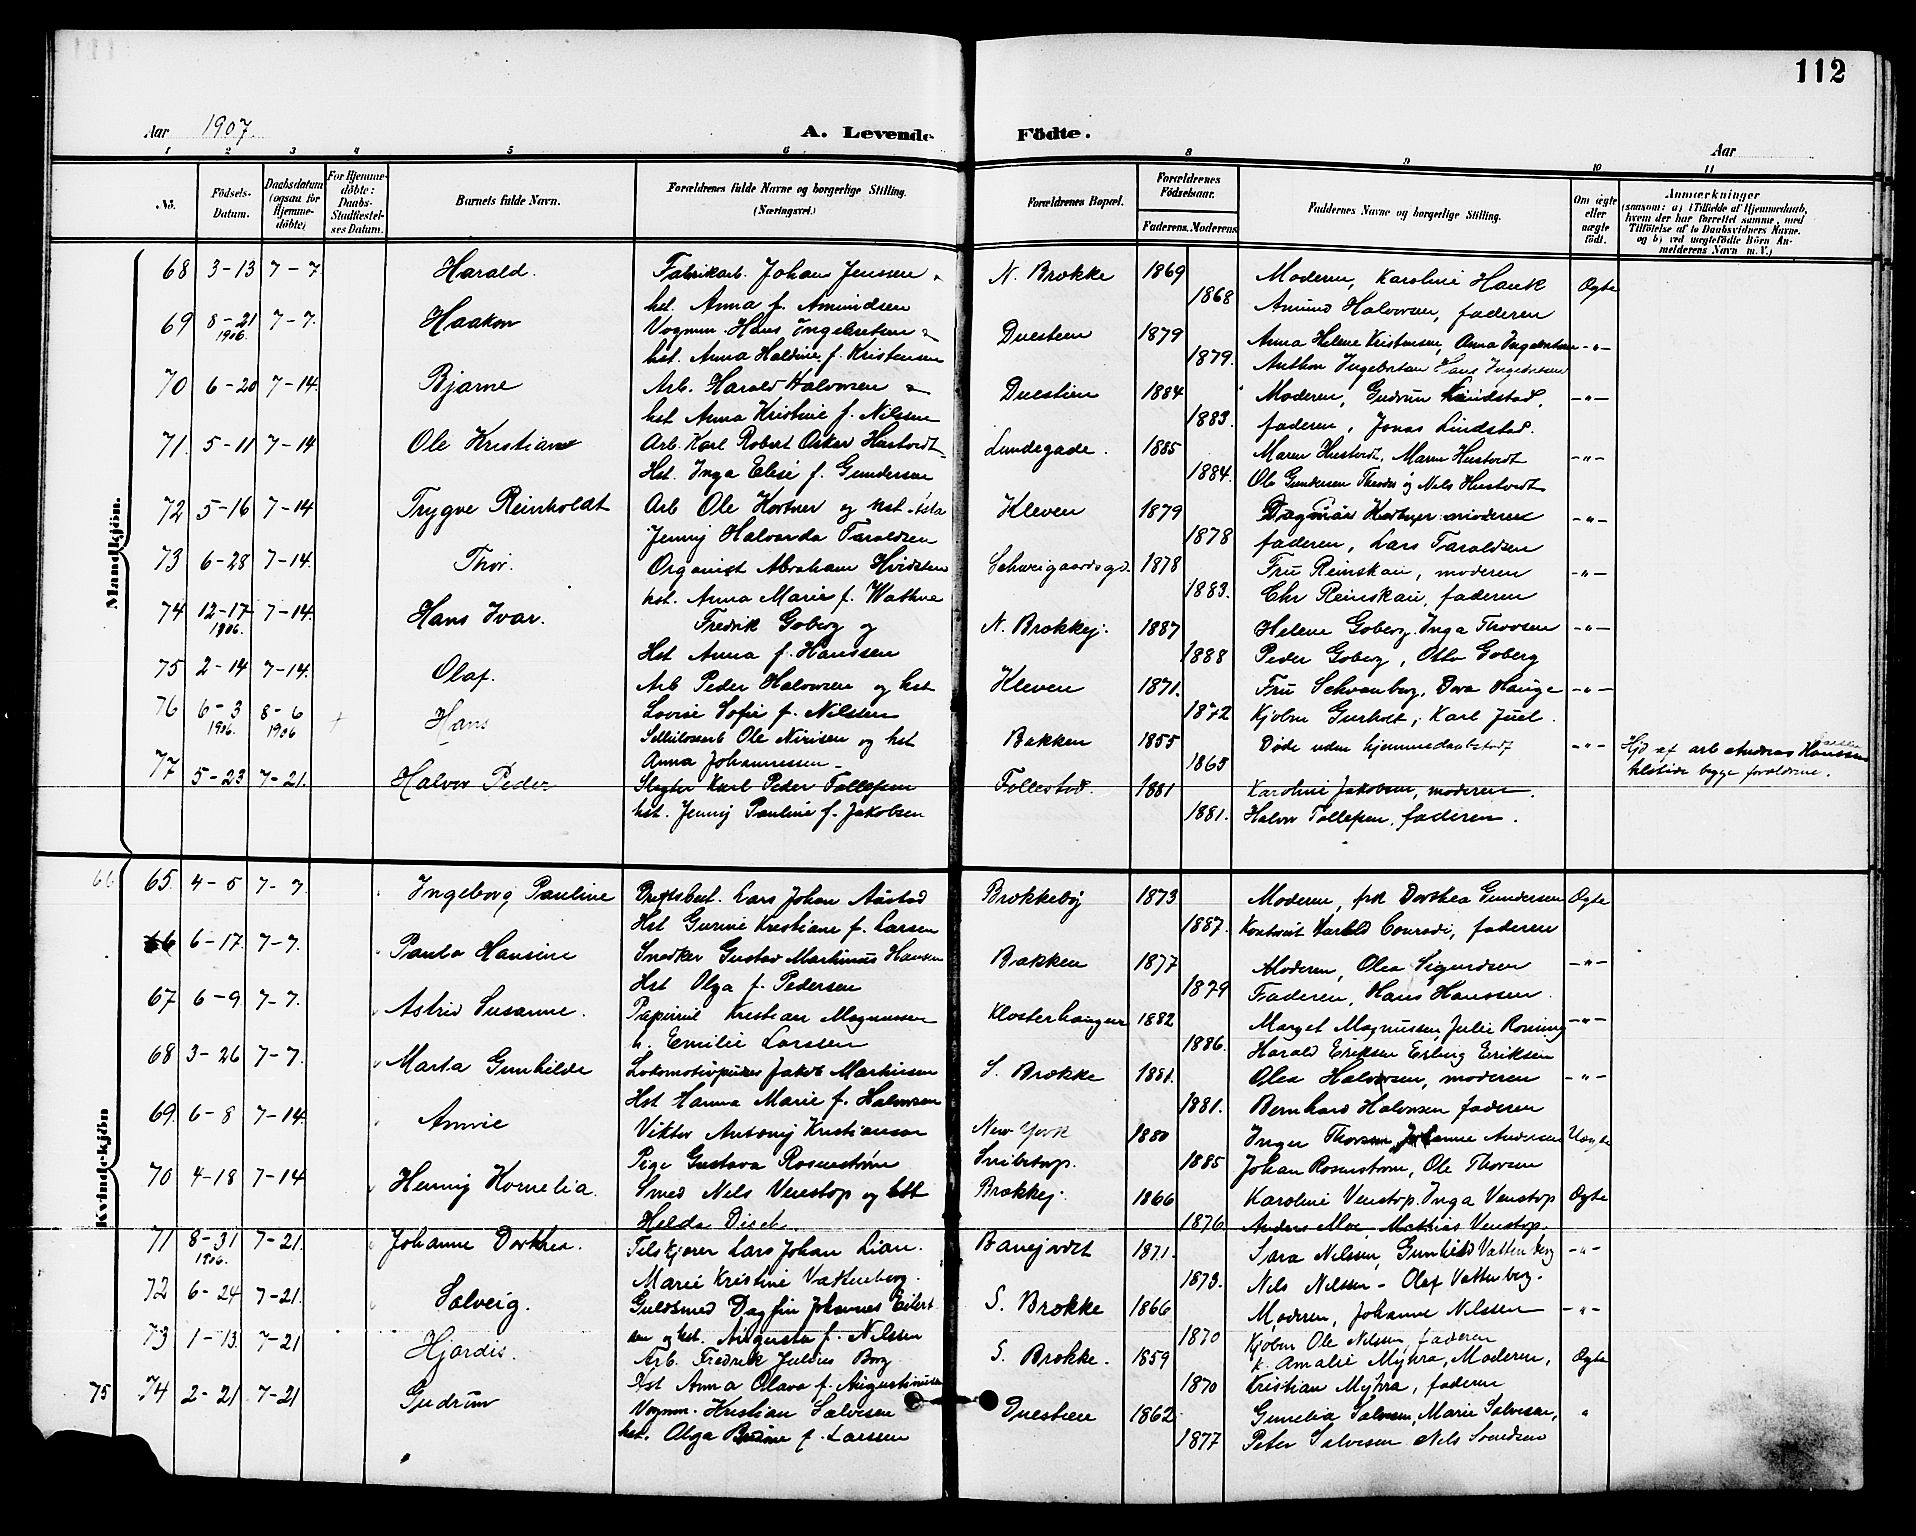 112
Aar 1907.
A. Levende Födte.
Aar
1 2 3 4 5 6 8 9 10 11
No.
Födsels-Datum.
Daabsdatum (ogsaa for Hjemmedöbte)
For Hjemmedöbte: Daabs-Stadfæstelses Datum.
Barnets fulde Navn.
Forældrenes fulde Navne og borgerlige Stilling. (Næringsvei.)
Forældrenes Bopæl.
Forældrenes Födselsaar.
Faderens. Moderens
Faddernes Navne og borgerlige Stilling.
Om ægte eller uægte födt.
Anmærkninger
(saasom: a) i Tilfælde af Hjemmedaab, hvem der har forrettet samme, med Tilföielse af to Daabsvidners Navne. og b) ved uægtefödte Börn Anmelderens Navn m. V.)
Mandkjön.
68 3-13 7-7 Harald. Fabrikarb. Johan Jensen N. Brække 1869 Moderen, Karoline Hauk Ægte
hst. Anna f. Amundsen 1868 Amund Halvorsen, faderen
69 8-21 1906. 7-7. Haakon Vognm. Hans Ingebretsen Duestien 1879 Anna Helene Kristensen, Anna Ingebretsen -"-
hst. Anna Haldine f. Kristensen 1879. Anthon Ingebretsen Hans Ingebretsen
70 6-20 7-14. Bjarne Arb. Harald Halvorsen Duestien 1884 Moderen, Gudrun Lindstad, -"-
hst Anna Kristine f. Nilssen 1883. faderen, Jonas Lindstad.
71. 5-11 7-14 Ole Kristian Arb. Karl Robert Oskar Hustvedt Lundegade. 1885 Maren Hustvedt, Maren Hustvedt -"-
Hst. Inga Elise f. Gundersen 1884. Ole Gundersen Theodor og Nils Hustvedt
72 5-16 7-14 Trygve Reinholdt Arb Ole Kortner og hst Kleven 1879 Dagmar Kortner moderen -"-
Jenny Halvarda Taraldsen 1878 faderen, Lars Taraldsen
73 6-28 7-14. Thor. Organist Abraham Hvidsten Schweigaardsgd. 1878 Fru Reinskau, moderen -"-
hst. Anna Marie f. Wathne 1883. Chr Reinskau, faderen
74 12-17 1906. 7-14. Hans Ivar. Fredrik Goberg og N. Brækkej. 1887 Helene Goberg. Inga Thovsen -"-
Hst Anna f. Hanssen 1888 Peder Goberg, Otto Goberg
75 2-14 7-14. Olaf. Arb Peder Halvorsen og hst Kleven 1871. Fru Schvanberg, Dora Hauge -"-
Lovise Sofie f. Nilsen 1872 Kjøbm Gusholt, Karl Juel.
76 6-3 1906. 8-6 1906 + Hans Sellulosearb Ole Nirisen og hst Bakken 1855 Døde uden hjemmedaabstadf -"- Hjd af arb Andreas Hanssen
Anna Johannessen 1865 tilstede begge forældrene.
77 5-23 7-21. Halvor Peder Slagter Karl Peder Tollefsen Follestad. 1881 Karoline Jakobsen, moderen.
hst. Jenny Pauline f. Jakobsen 1881. Halvor Tollefsen, faderen.
Kvindekjön
66 65. 4-5 7-7. Ingeborg Pauline Driftsbest. Lars Johan Aastad Brækkebøj 1873 Moderen, frk Dorthea Gundersen Ægte
Hst Gurine Kristiane f. Larsen 1887. Kontorist Harald Conradi, faderen
66 6-17. 7-7. Paula Hansine Snedker Gustav Martinus Hansen Bakken 1877 Moderen, Olea Sigurdsen -"-
Hst Olga f. Pedersen 1879 Faderen, Hans Hanssen.
67 6-9 7-7. Astrid Susanne. Papirml Kristian Magnussen Klosterhaugen 1882 Marget Magnussen, Julie Roning -"-
h. Emilie Larssen 1886. Harald Eriksen Erling Eriksen
68 3-26 7-7. Marta Gunhilde Lokomotivpudser Jakob Martinsen S. Brække 1881. Olea Halvorsen, moderen -"-
Hst Hanna Marie f. Halvorsen 1881. Bernhard Halvorsen faderen
69. 6-8 7-14. Annie Viktor Antony Kristiansen New York 1880 Inger Thorsen Johanne Andersen Uægte
Pige Gustava Rosenstrøm Snibetorp. 1885 Johan Rosenstrøm, Ole Thorsen
70 4-18 7-14 Henny Kornelia. Smed Nils Venstøp og hst Brækkej. 1866 Karoline Venstøp. Inga Venstøp Ægte
Hilda Disch. 1876. Anders Moe, Mathias Venstøp.
71 8-31 1906. 7-21. Johanne Dorthea. Filskjører Lars Johan Lian. Banejordet 1871. Sara Nilssen, Gunhild Vattenberg -"-
Marie Kristine Vattenberg. 1873. Nils Nilssen - Olaf Vattenberg.
72 6-24 7-21. Solveig. Guldsmed Dagfin Johannes Eilert- S. Brække 1866 Moderen, Johanne Nilssen -"-
sen og hst. Augusta f. Nilssen 1870 Kjøbm Ole Nilssen, faderen
73 1-13. 7-21 Hjørdis. Arb. Fredrik Julius Borg S. Brække. 1859 k. Amalie Myhra, Moderen, Ægte
Hst Anna Olava f. Augustinusen 1870 Kristian Myhra, faderen
75 74 2-21. 7-21 Gudrun Vognm. Kristian Salvesen Duestien 1862. Gunelia Salvesen, Marie Salvesen, "
hst. Olga f. Larssen 1877 Peter Salvesen Nils Svendsen